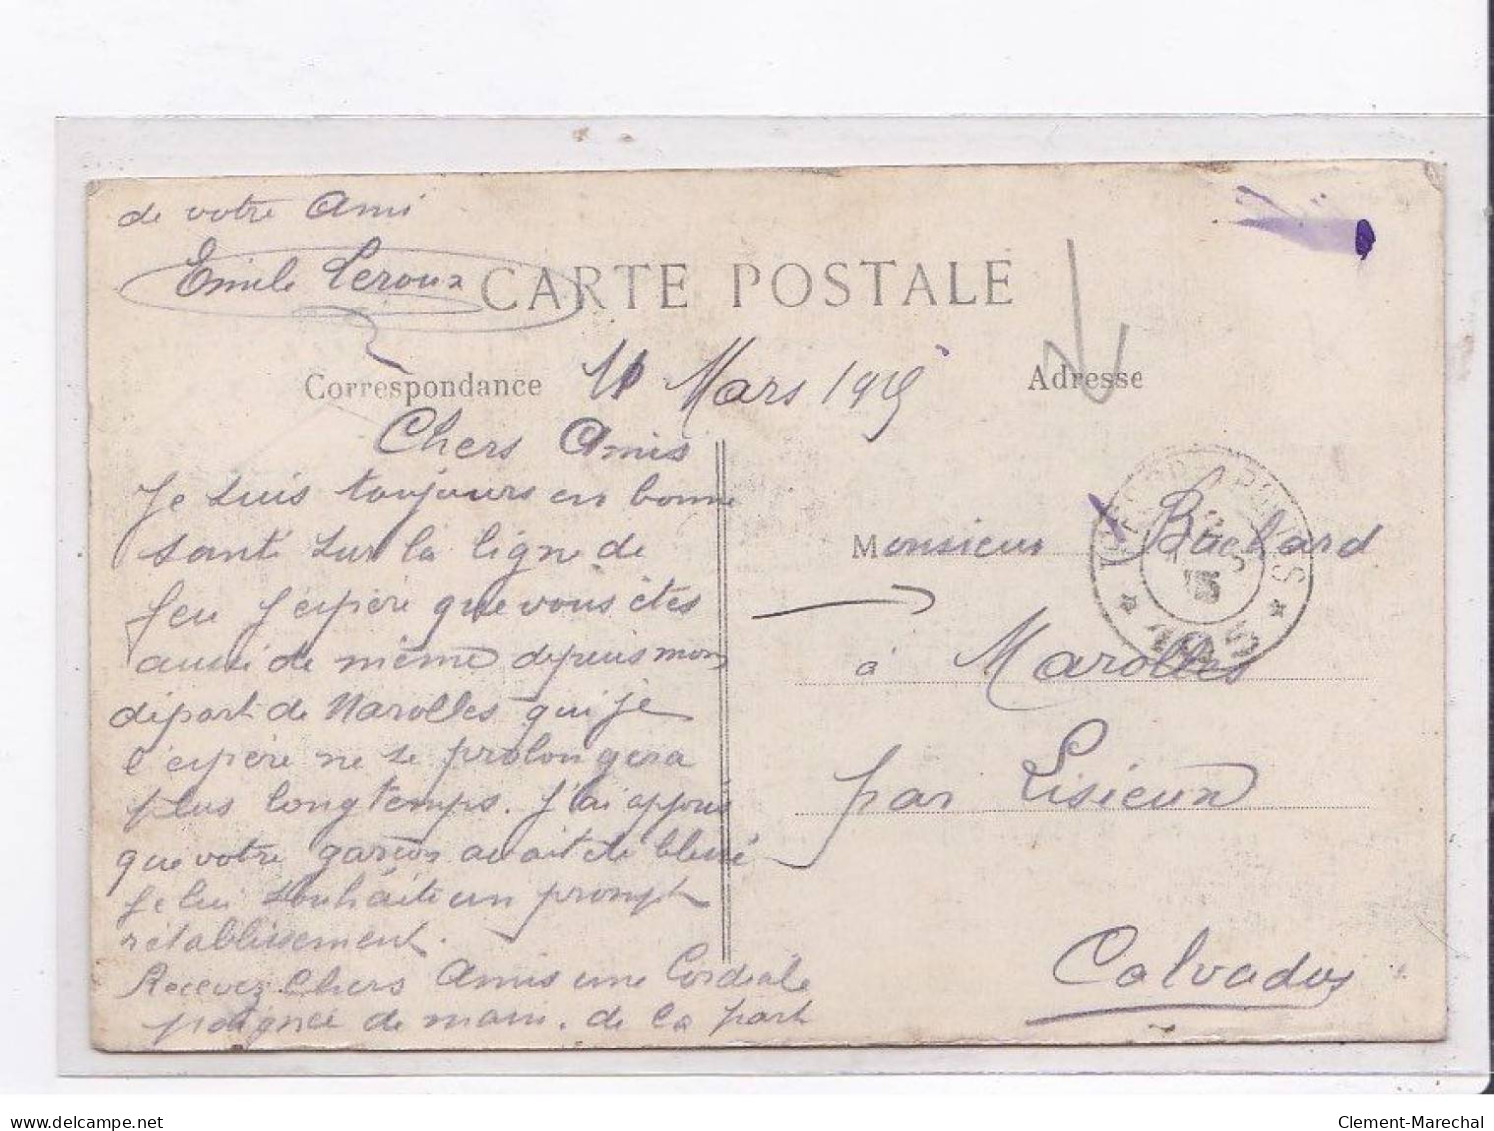 de votre Ami
Emile Leroux
CARTE POSTALE
Correspondance
Adresse
11 Mars 1915
Chers Amis
Je suis toujours en bonne
santé sur la ligne de
feu J'espère que vous êtes
aussi de même depuis mon
départ de Marolles qui je
l'espère ne se prolongera
plus longtemps. J'ai appris
que votre garçon avait été blessé
Je lui souhaite un prompt
rétablissement.
Recevez Chers Amis une Cordiale
poignée de main. de la part
Monsieur Bachard
à Marolles
par Lisieux
Calvados
TRESOR ET POSTES
delcampe.net
Clement-Marechal